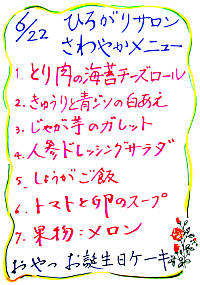 6/22 ひろがりサロン
さわやかメニュー
1. とり肉の海苔チーズロール
2. きゅうりと青ジソの白あえ
3. じゃが芋のガレット
4. 人参ドレッシングサラダ
5. しょうがご飯
6. トマトと卵のスープ
7. 果物:メロン
おやつ お誕生日ケーキ